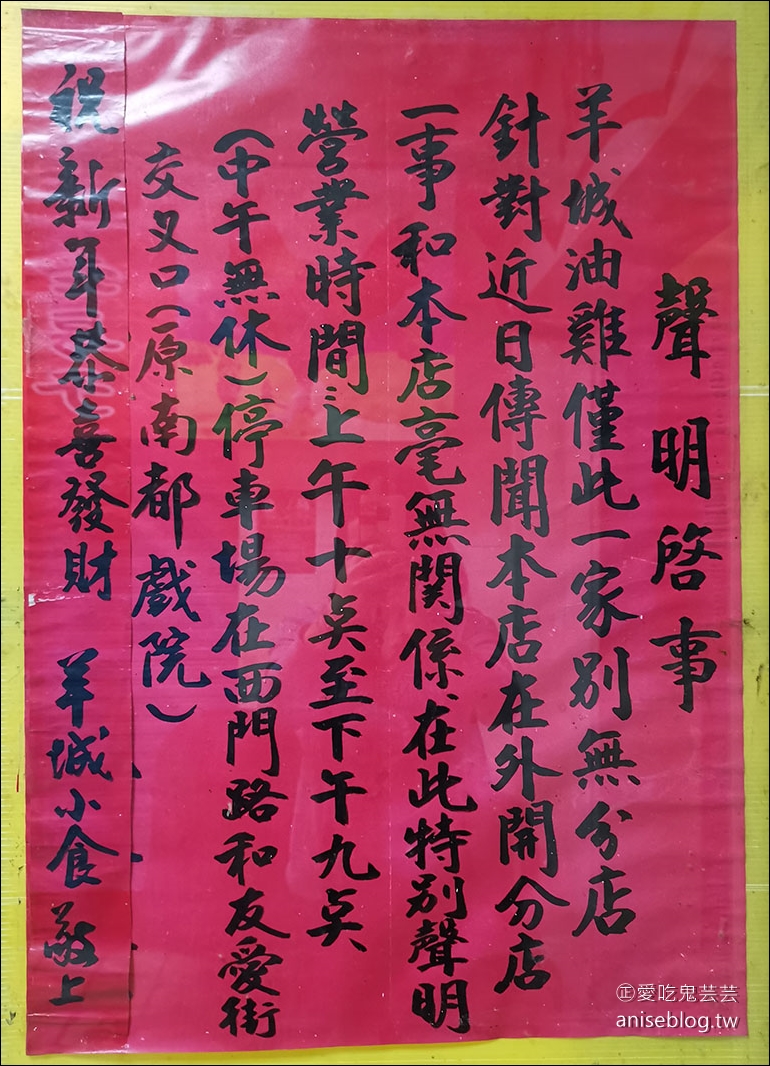 聲明啓事
羊城油雞僅此一家別無分店
針對近日傳聞本店在外開分店
一事和本店毫無関係在此特別聲明
營業時間:上午十点至下午九点
(中午無休)停車場在西門路和友愛街
交叉口(原南都戲院)
祝新年恭喜發財 羊城小食敬上
正愛吃鬼芸芸
aniseblog.tw